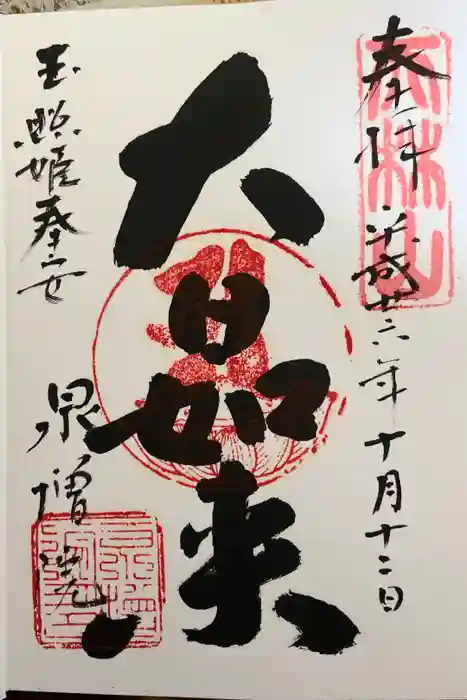 奉拝 平成廿六年十月十二日
大日如来
玉照姫奉安
泉増院